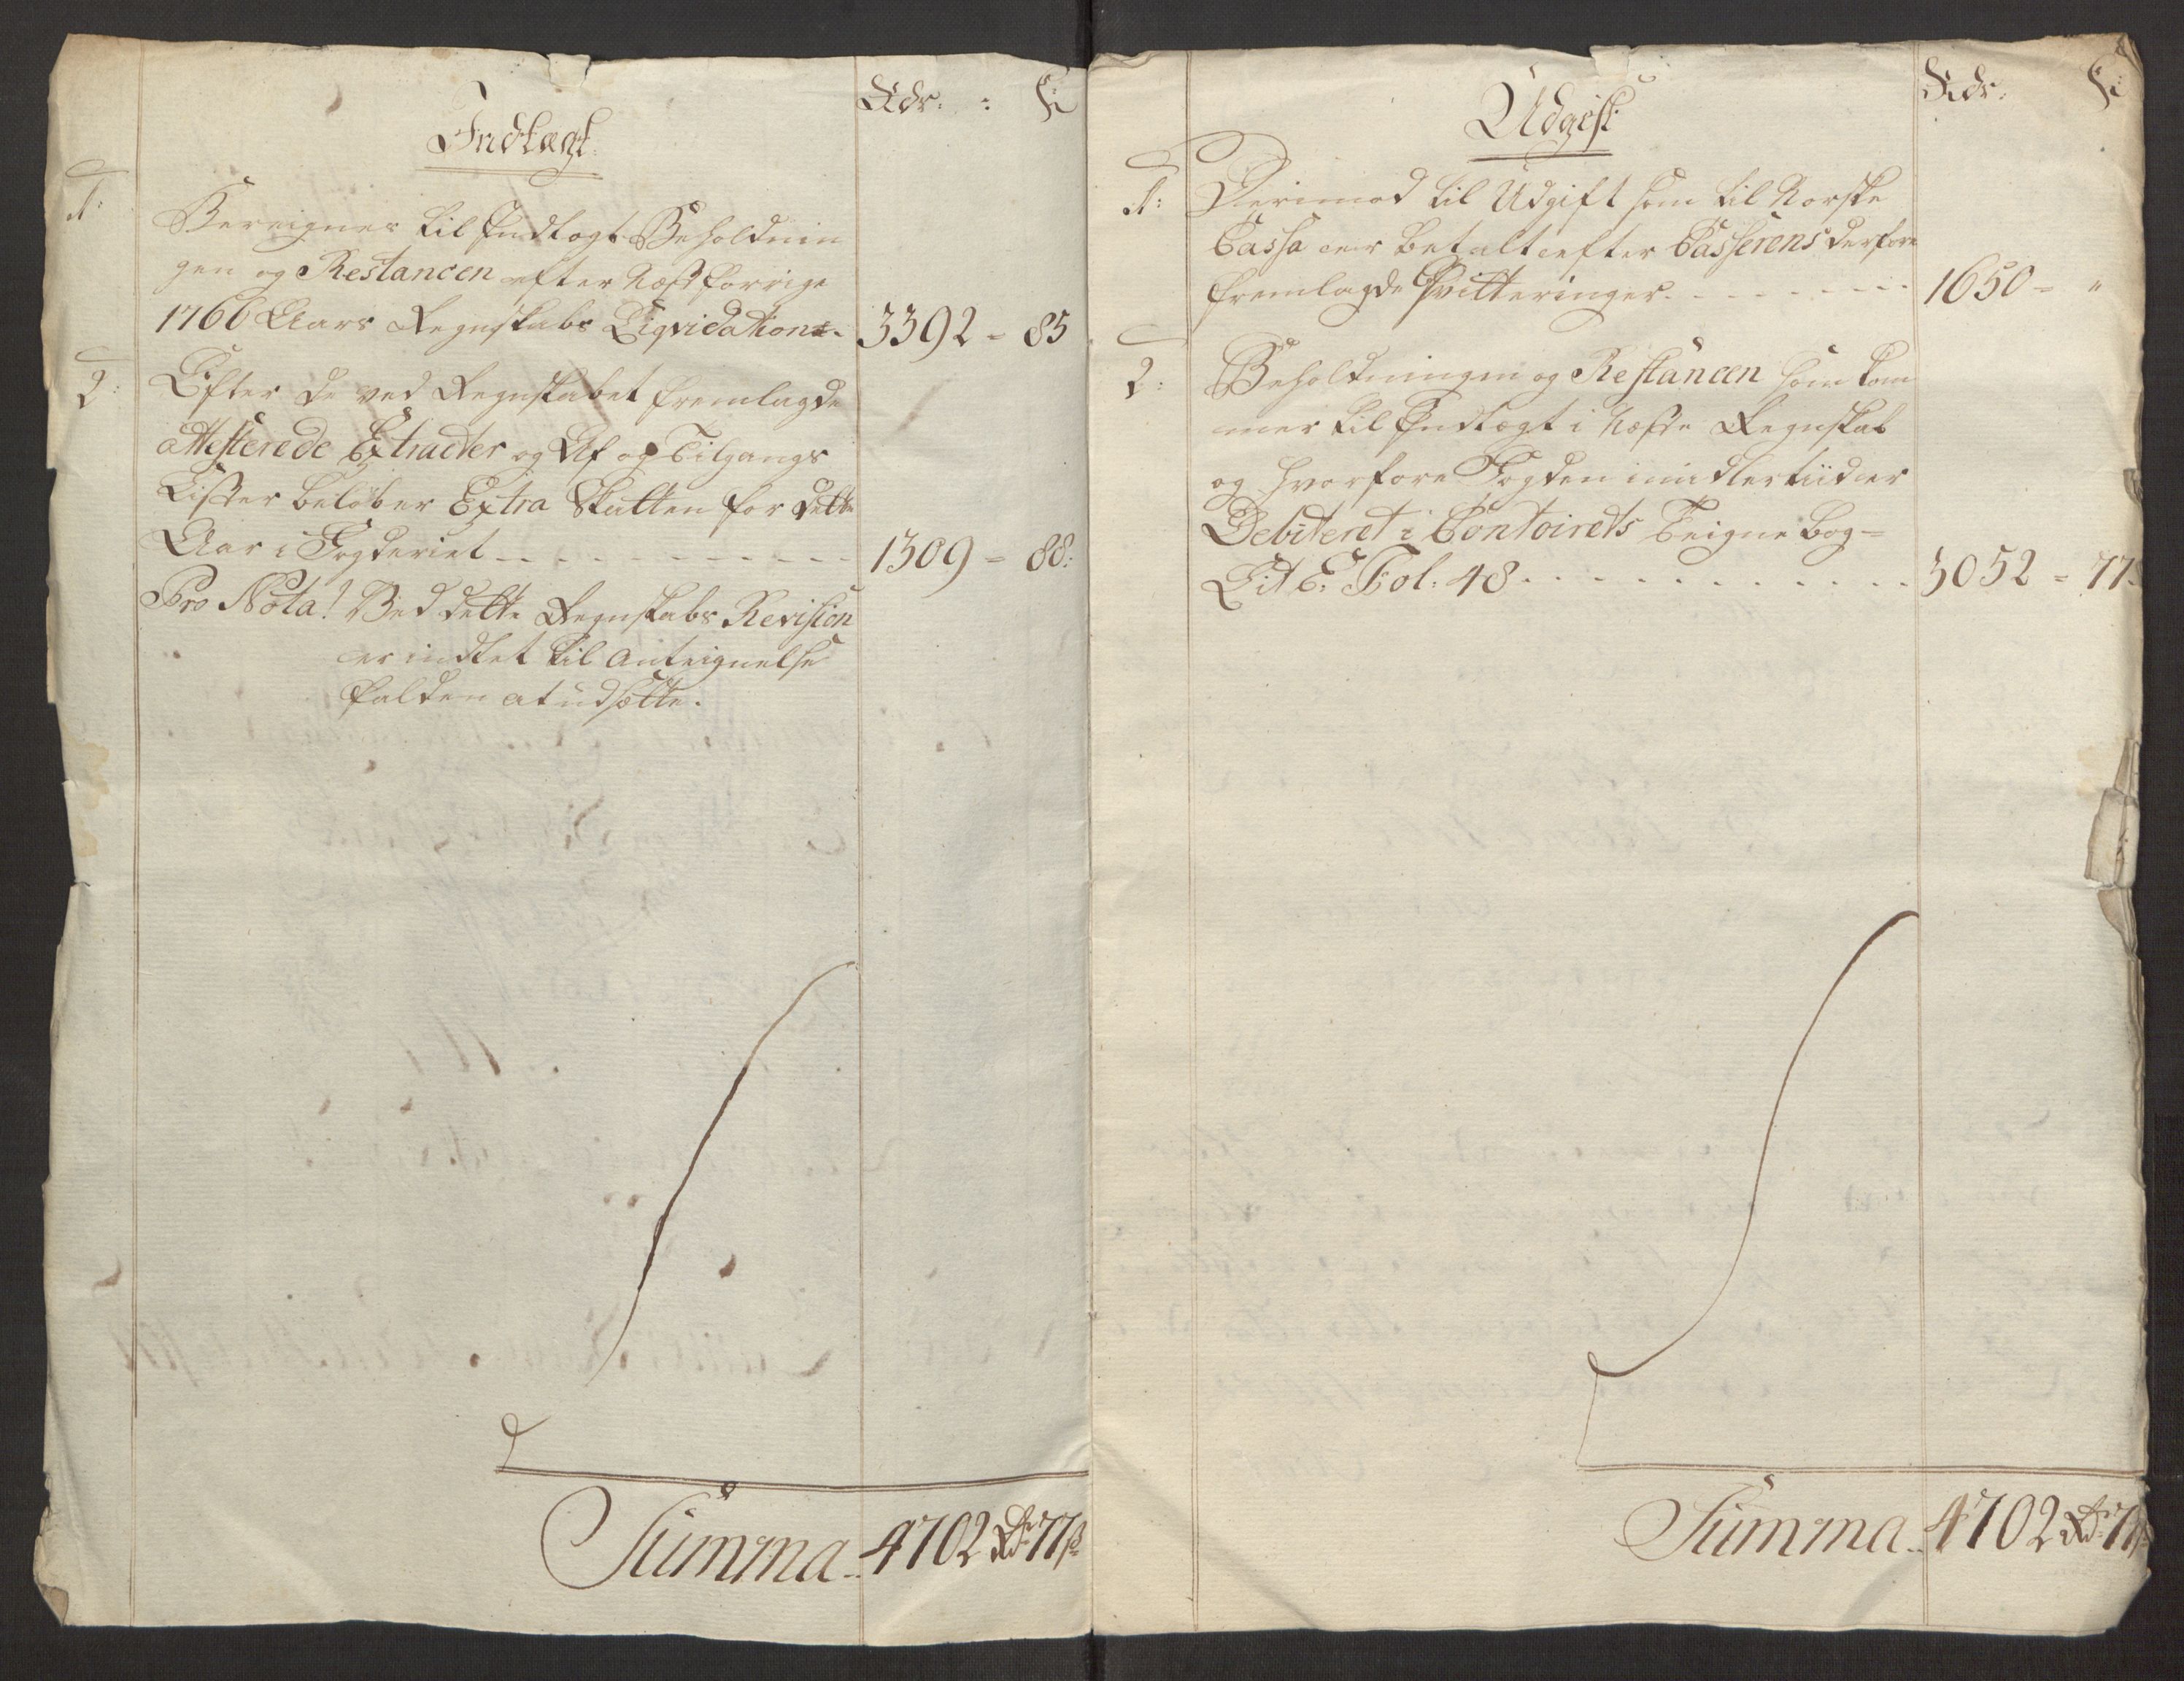 Indtægt.
Rdr. : ß
1:
Beregnes til Indtægt Beholdnin
gen og Restancen efter næst forrige
1766 Aars Regnskabs Liqvidation.
3392 = 85
2:
Efter de ved Regnskabet fremlagde
attesterede Extracter og Af og Tilgangs
Lister beløber Extra Skatten for dette
Aar i Fogderiet
1309 = 88:
Pro Nota! Ved dette Regnskabs Revision
er indtet til Anteignelse
falden at udsætte.
Summa 4702 Rd 77 ß
Udgift
Rdr. ß
1:
Derimod til Udgift som til Norske
Cassa er betalt efter Casserens derfore
fremlagde Qvitteringer
1650 = "
2:
Beholdningen og Restancen som kom
mer til Indtægt i næste Regnskab
og hvorfore Fogden imidlertiid er
Debiteret i Contoirets Teigne bog=
Lit C. Fol: 48
3052 = 77
Summa 4702 Rd 77